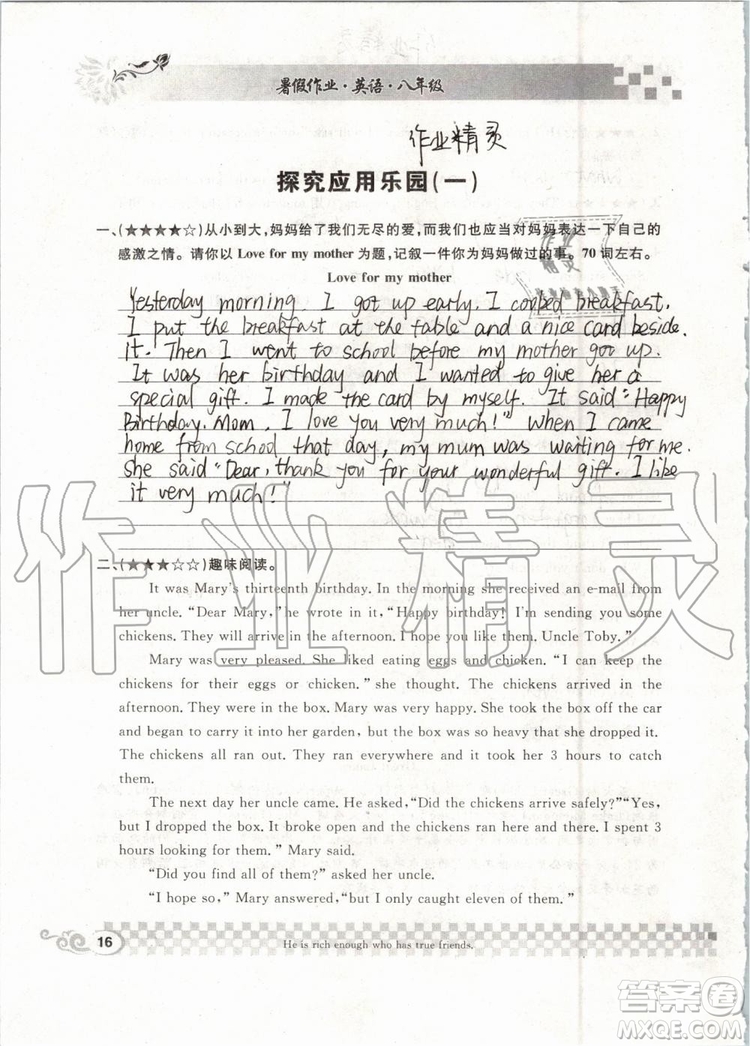 暑假作业·英语·八年级
作业精灵
探究应用乐园(一)
一、(★★★★☆)从小到大,妈妈给了我们无尽的爱,而我们也应当对妈妈表达一下自己的
感激之情。请你以 Love for my mother 为题,记叙一件你为妈妈做过的事。70 词左右。
Love for my mother
Yesterday morning. I got up early. I coobed breakfast.
I put the breakfast at the table and a nice card beside.
it. Then I went to school before my mother got up.
It was her birthday and I wanted to give her a
special gift. I made the card by myself. It said "Happy
Birthday. Mom. I love you very much!" When I came
home from school that day, my mum was waiting for me.
She said "Dear, thank you for your wonderful gift. I like
it very much!"
二、(★★★☆☆)趣味阅读。
It was Mary's thirteenth birthday. In the morning she received an e-mail from
her uncle. "Dear Mary," he wrote in it, "Happy birthday! I'm sending you some
chickens. They will arrive in the afternoon. I hope you like them. Uncle Toby."
Mary was very pleased. She liked eating eggs and chicken. "I can keep the
chickens for their eggs or chicken." she thought. The chickens arrived in the
afternoon. They were in the box. Mary was very happy. She took the box off the car
and began to carry it into her garden, but the box was so heavy that she dropped it.
The chickens all ran out. They ran everywhere and it took her 3 hours to catch
them.
The next day her uncle came. He asked,"Did the chickens arrive safely?""Yes,
but I dropped the box. It broke open and the chickens ran here and there. I spent 3
hours looking for them." Mary said.
"Did you find all of them?" asked her uncle.
"I hope so," Mary answered,"but I only caught eleven of them."
16
He is rich enough who has true friends.
作业精灵
作业精灵
答案卷
MXQE.COM